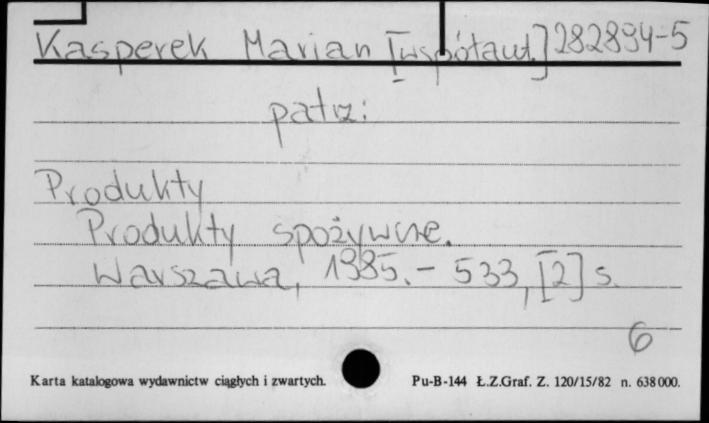 Kasperek Marian [współaut.] 282894-5
patrz:
Produkty
Produkty spożywcze.
Warszawa, 1985.- 533, [2] s.
6
Karta katalogowa wydawnictw ciągłych i zwartych. Pu-B-144 Ł.Z.Graf. Z. 120/15/82 n. 638000.